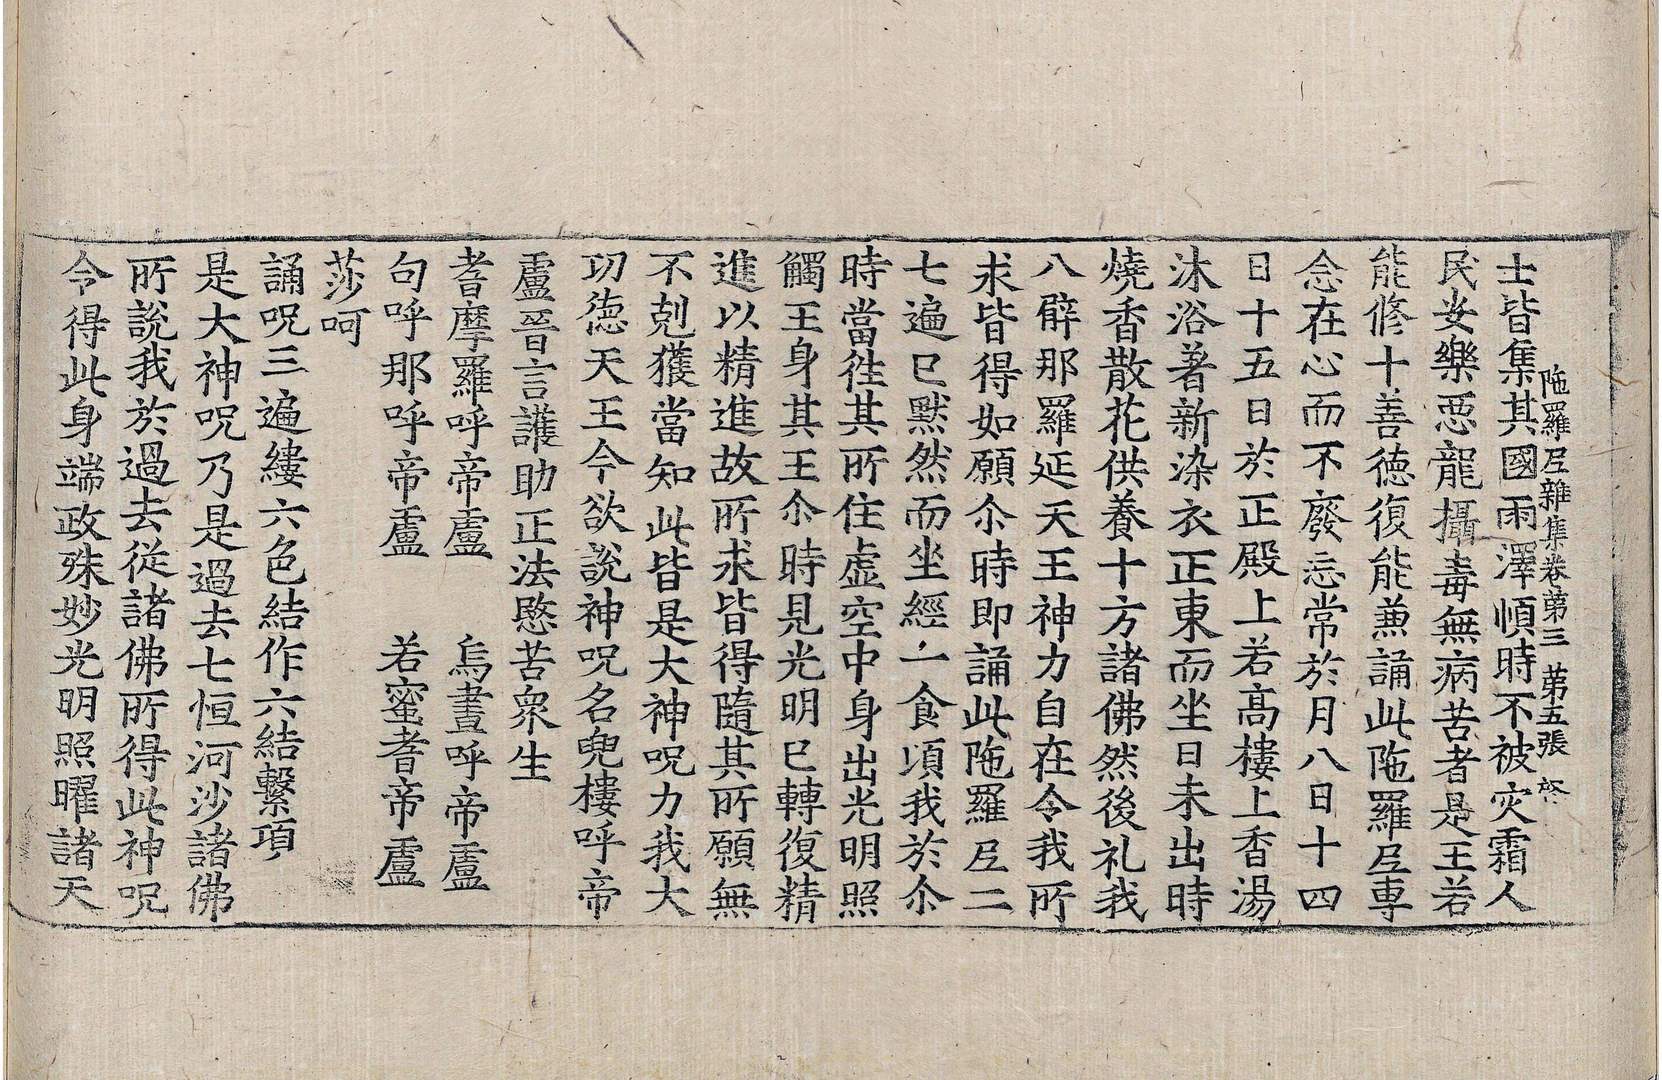 陁羅尼雜集卷第三　第五張
士皆集其國雨澤順時不被灾霜人
民安樂惡龍攝毒無病苦者是王若
能修十善德復能兼誦此陁羅尼專
念在心而不廢忘常於月八日十四
日十五日於正殿上若高樓上香湯
沐浴著新染衣正東而坐日未出時
燒香散花供養十方諸佛然後礼我
八臂那羅延天王神力自在令我所
求皆得如願尒時即誦此陁羅尼二
七遍已默然而坐經一食頃我於尒
時當徃其所住虛空中身出光明照
觸王身其王尒時見光明已轉復精
進以精進故所求皆得隨其所願無
不剋獲當知此皆是大神呪力我大
功德天王今欲說神呪名兜樓呼帝
盧晉言護助正法愍苦衆生
耆摩羅呼帝盧　烏晝呼帝盧
句呼那呼帝盧　若蜜耆帝盧
莎呵
誦呪三遍縷六色結作六結繫項
是大神呪乃是過去七恒河沙諸佛
所說我於過去從諸佛所得此神呪
令得此身端政殊妙光明照曜諸天